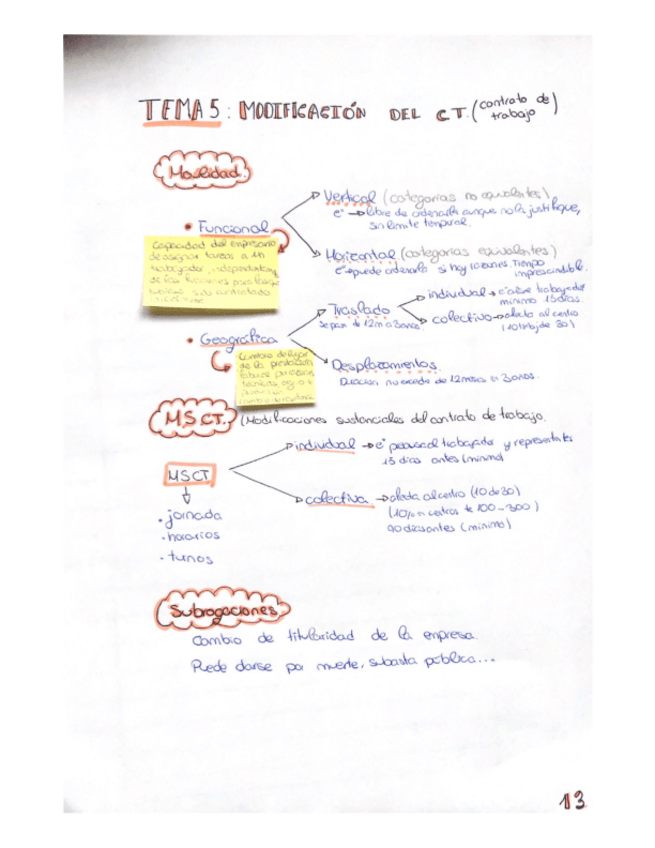 TEMA 5: MODIFICACIÓN DEL C.T. (contrato de trabajo)
Movilidad
Vertical (categorías no equivalentes)
eº → libre de ordenarla aunque no la justifique,
sin limite temporal.
• Funcional
Capacidad del empresario
de asignar tareas a un
trabajador, independientem
de las funciones para las que
Horizontal (categorías equivalentes)
eº → puede ordenarla si hay razones. Tiempo
imprescindible.
Traslado
se pasa de 12m a 3 años.
individual → eº avise trabajador
mínimo 15 días.
colectivo → afecta al centro
(10 trbj de 30)
• Geográfica
Cambio de lugar
de la prestación
laboral por razones
técnicas, org. o
Desplazamientos.
Duración no excede de 12 meses en 3 años.
M.S.C.T. (Modificaciones sustanciales del contrato de trabajo.
individual → eº preavisa al trabajador y representantes
15 días antes (mínimo)
MSCT
colectiva → afecta al centro (10 de 30)
(10% en centros 100-300)
días antes (mínimo)
• jornada
• horarios
• turnos
Subrogaciones
Cambio de titularidad de la empresa.
Puede darse por muerte, subasta pública...
13